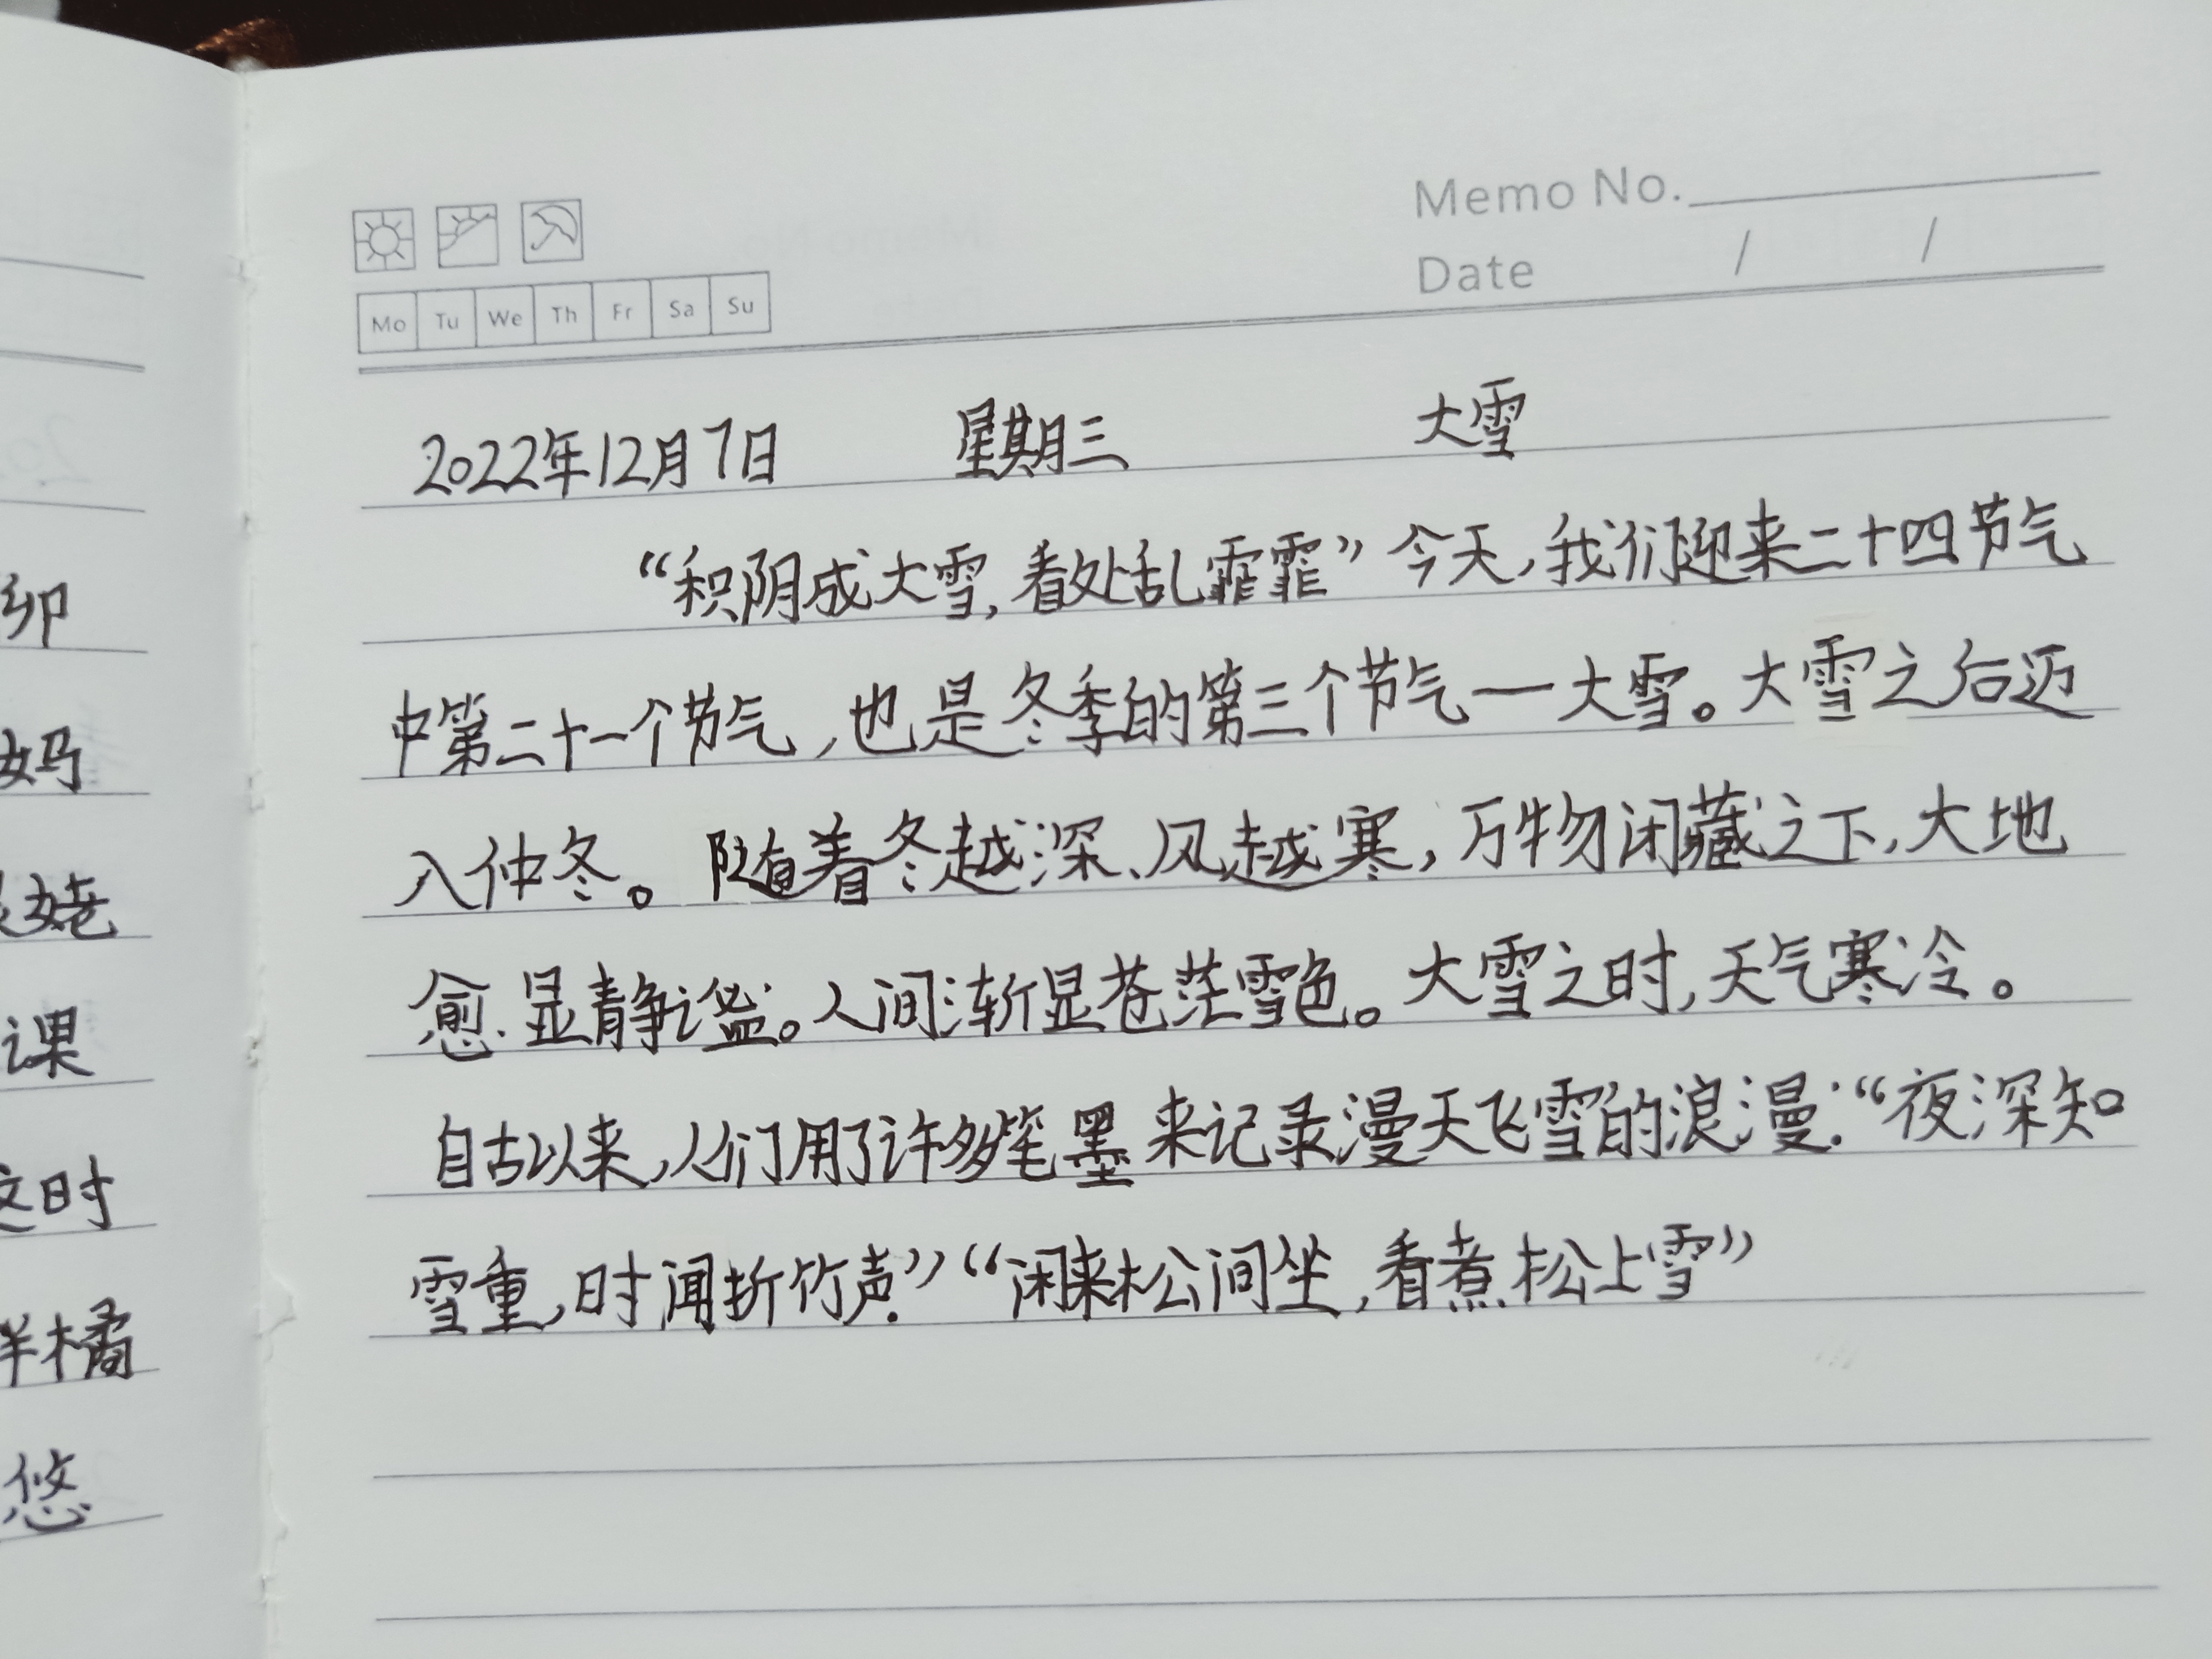 卯
妈
姥
课
这时
样橘
悠
Memo No.
Date / /
Mo Tu We Th Fr Sa Su
2022年12月7日 星期三 大雪
“积阴成大雪,看处乱霏霏”今天,我们迎来二十四节气
中第二十一个节气,也是冬季的第三个节气一大雪。大雪之后迈
入仲冬。随着冬越深、风越寒,万物闭藏之下,大地
愈显静谧。人间渐显苍茫雪色。大雪之时,天气寒冷。
自古以来,人们用了许多笔墨来记录漫天飞雪的浪漫:“夜深知
雪重,时闻折竹声.”“闲来松间坐,看煮松上雪”